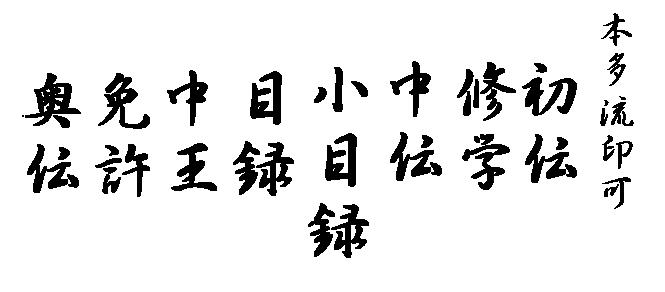 本多流印可
初伝
修学
中伝
小目録
目録
中王
免許
奥伝